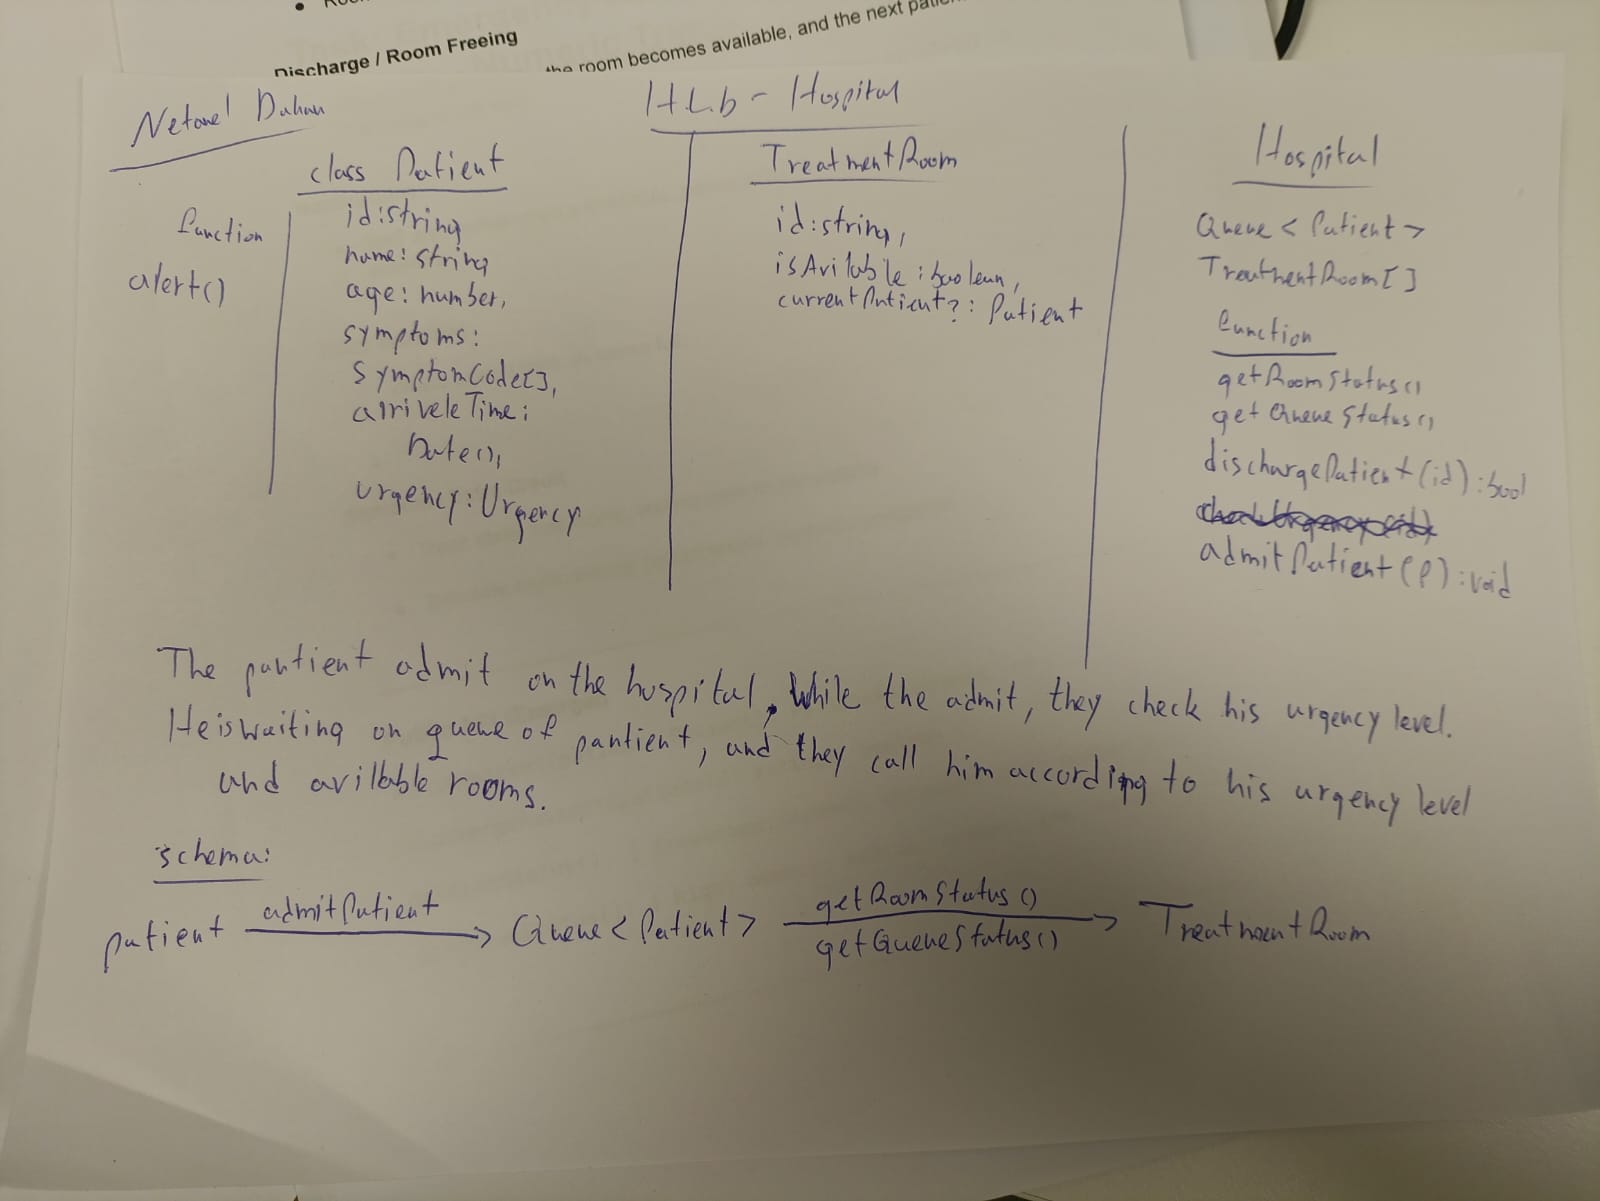 Discharge / Room Freeing
the room becomes available, and the next
Netanel Dahan
H.L.b - Hospital
class Patient
function
alert()
id:string
name: string
age: number,
symptoms:
SymptomCode[],
arriveleTime:
Date(),
urgency: Urgency
TreatmentRoom
id:string,
isAvilable: boolean,
currentPatient?: Patient
Hospital
Queue < Patient >
TreatmentRoom[]
function
getRoomStatus()
getQueueStatus()
dischargePatient(id): bool
admitPatient(p): void
The pantient admit on the hospital. While the admit, they check his urgency level.
He is waiting on queue of pantient, and they call him according to his urgency level
and avilable rooms.
schema:
patient admitPatient Queue < Patient > getRoomStatus() getQueueStatus() TreatmentRoom